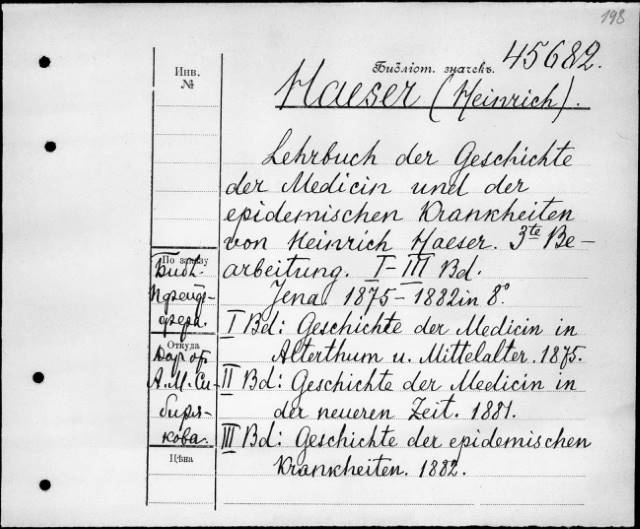 198
Инв.
№
Библіот. значекъ.
45682.
Haeser (Heinrich).
Lehrbuch der Geschichte
der Medicin und der
epidemischen Krankheiten
von Heinrich Haeser. 3te Be-
arbeitung. I-III Bd.
Jena 1875-1882 in 8°
I Bd: Geschichte der Medicin in
Alterthum u. Mittelalter. 1875.
II Bd: Geschichte der Medicin in
der neueren Zeit. 1881.
III Bd: Geschichte der epidemischen
Krankheiten. 1882.
По заказу
Библ.
Откуда
Дар от
А. М. Си-
биря-
кова.
Цѣна